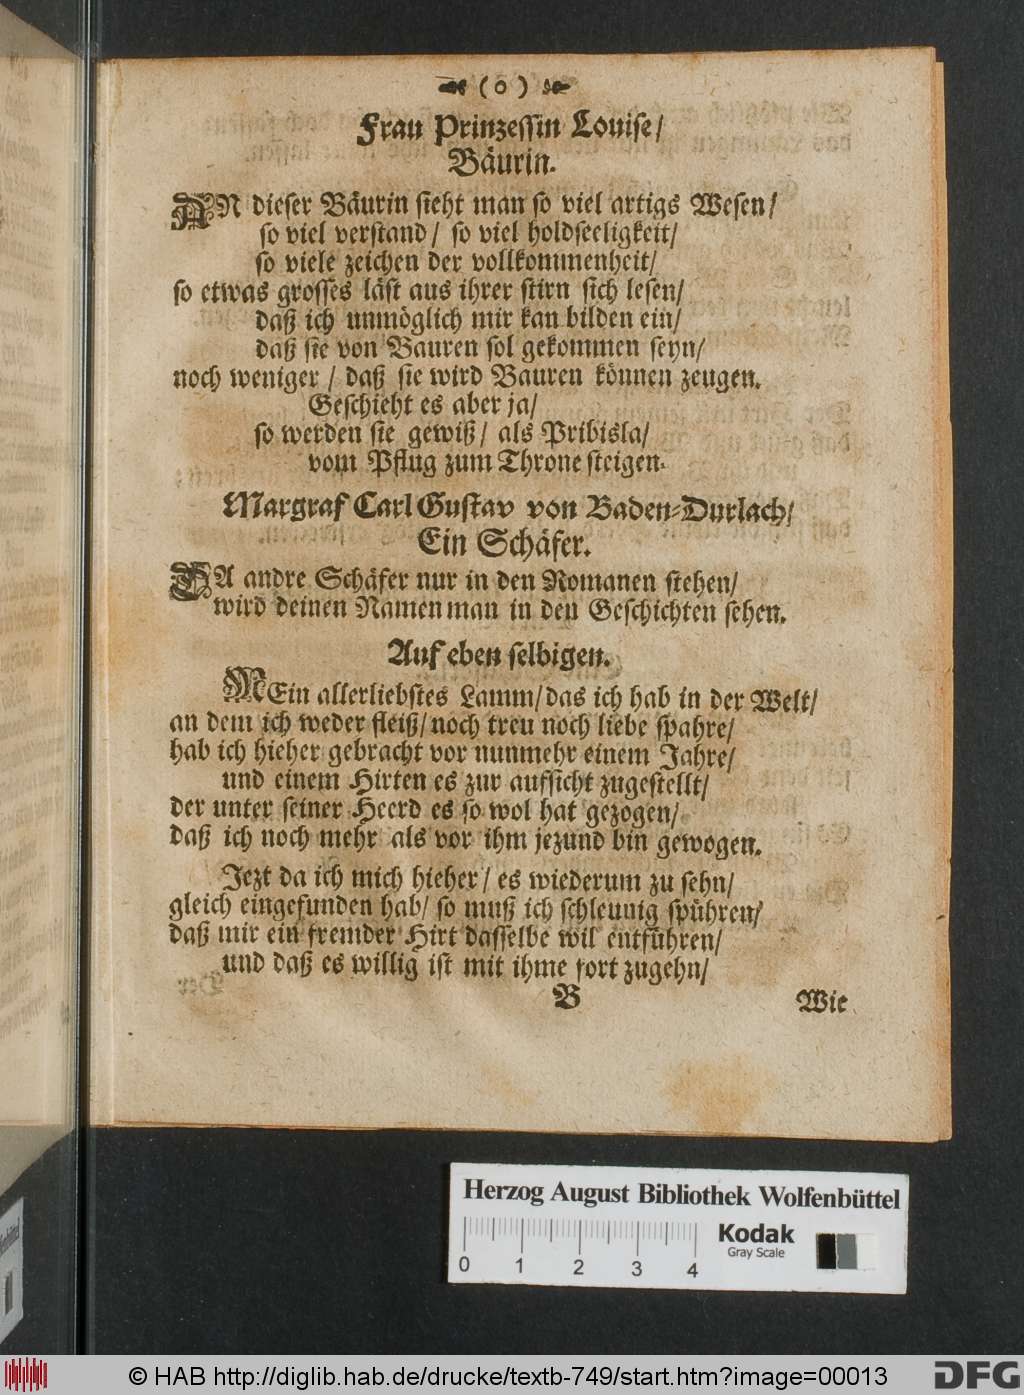 (o)
Frau Prinzessin Louise/
Bäurin.
AN dieser Bäurin sieht man so viel artigs Wesen/
so viel verstand/ so viel holdseeligkeit/
so viele zeichen der vollkommenheit/
so etwas grosses läst aus ihrer stirn sich lesen/
daß ich unmöglich mir kan bilden ein/
daß sie von Bauren sol gekommen seyn/
noch weniger/ daß sie wird Bauren können zeugen.
Geschieht es aber ja/
so werden sie gewiß/ als Pribisla/
vom Pflug zum Throne steigen.
Margraf Carl Gustav von Baden-Durlach/
Ein Schäfer.
DA andre Schäfer nur in den Romanen stehen/
wird deinen Namen man in den Geschichten sehen.
Auf eben selbigen.
MEin allerliebstes Lamm/ das ich hab in der Welt/
an dem ich weder fleiß/ noch treu noch liebe spahre/
hab ich hieher gebracht vor nunmehr einem Jahre/
und einem Hirten es zur aufsicht zugestellt/
der unter seiner Heerd es so wol hat gezogen/
daß ich noch mehr als vor ihm jezund bin gewogen.
Jezt da ich mich hieher/ es wiederum zu sehn/
gleich eingefunden hab/ so muß ich schleunig spühren/
daß mir ein fremder Hirt dasselbe wil entführen/
und daß es willig ist mit ihme fort zugehn/
B Wie
Herzog August Bibliothek Wolfenbüttel
0 1 2 3 4
Kodak
Gray Scale
© HAB http://diglib.hab.de/drucke/textb-749/start.htm?image=00013
DFG